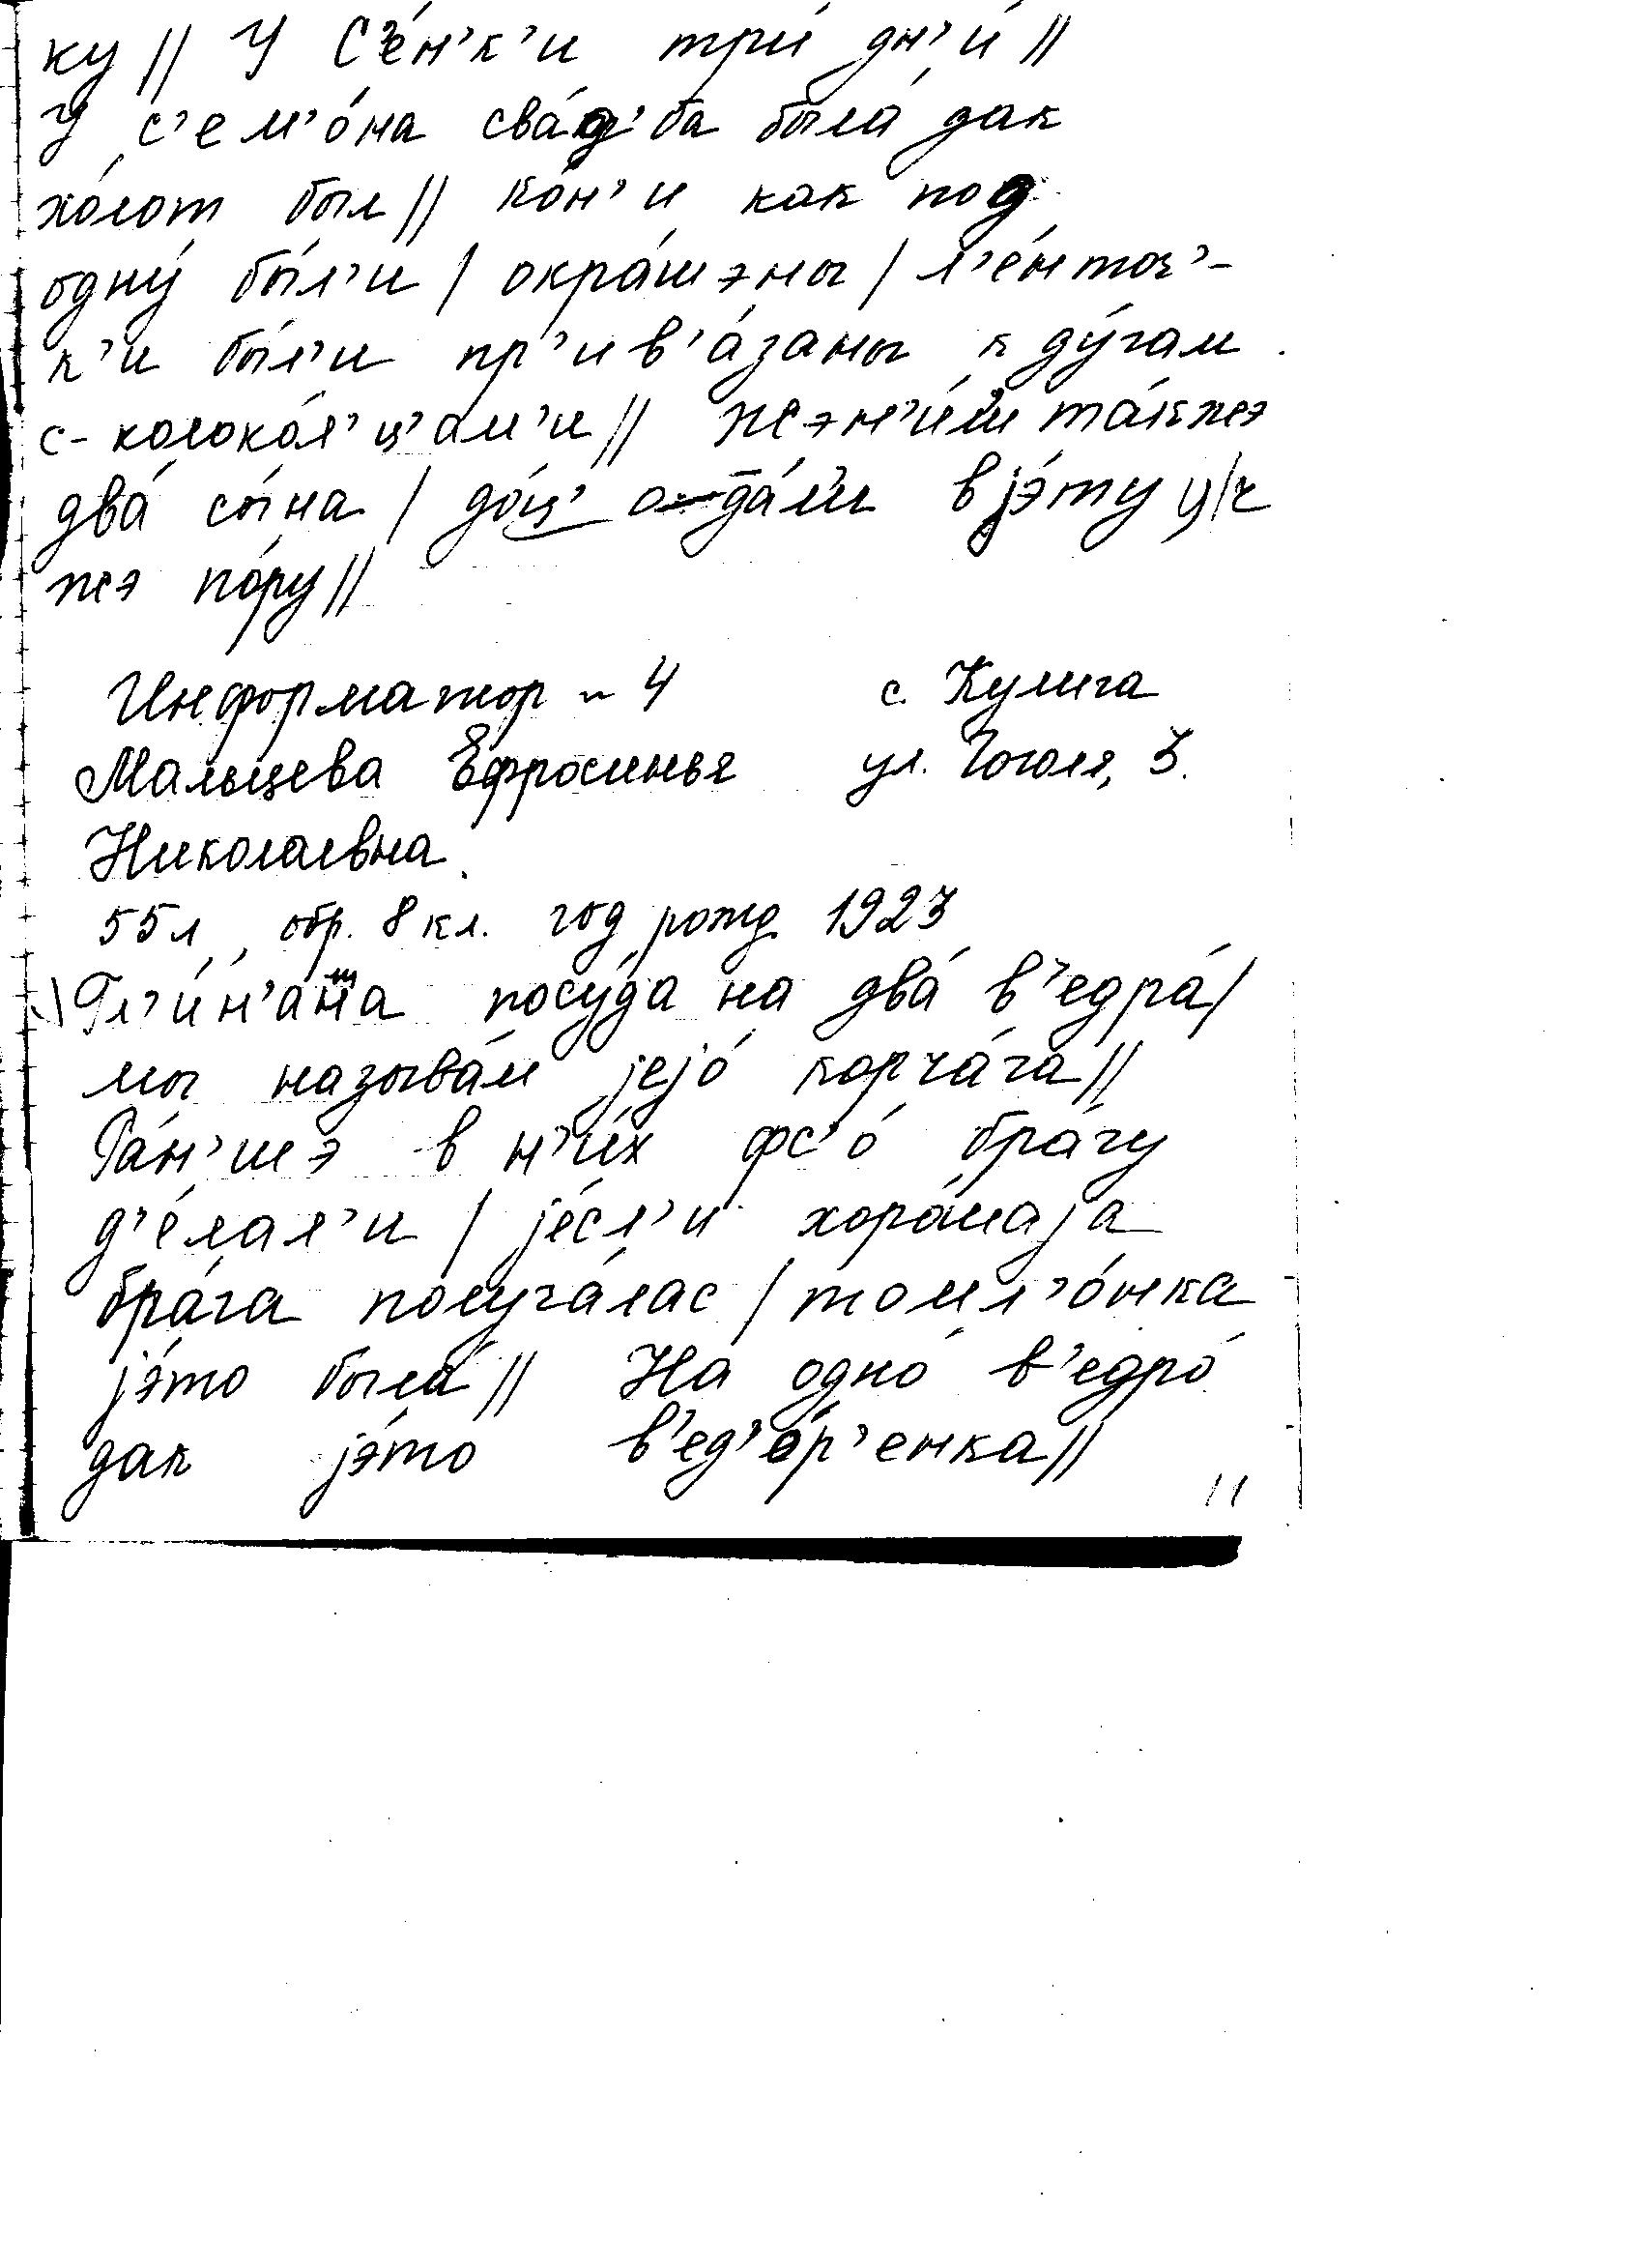 ку // У С'е́н'к'и три́ дн'и́ //
У с'ем'о́на сва́д'ба была́ дак
хо́лот был // Ко́н'и как под
одну́ бы́л'и / окра́шэны / л'е́нточ'-
к'и бы́л'и пр'ив'а́заны к ду́гам
с-колоко́л'ц'ам'и // жэн'и́л'и та́кжэ
два́ сы́на / до́ц' о-да́л'и в jэ́ту ц/ч
жэ по́ру //
Информатор - 4 с. Кулига
Мальцева Ефросинья ул. Гоголя, 3.
Николаевна
55 л, обр. 8 кл. год рожд 1923
Гл'и́н'ана посу́да на два́ в'едра́ /
мы называ́м jеjо́ корча́га //
Ра́н'шэ в н'и́х фс'о́ бра́гу
д'е́лал'и / jе́сл'и хоро́шаjа
бра́га получа́лас / томл'о́нка
jэ́то была́ // На одно́ в'едро́
дак jэ́то в'ед'о́р'енка //
11